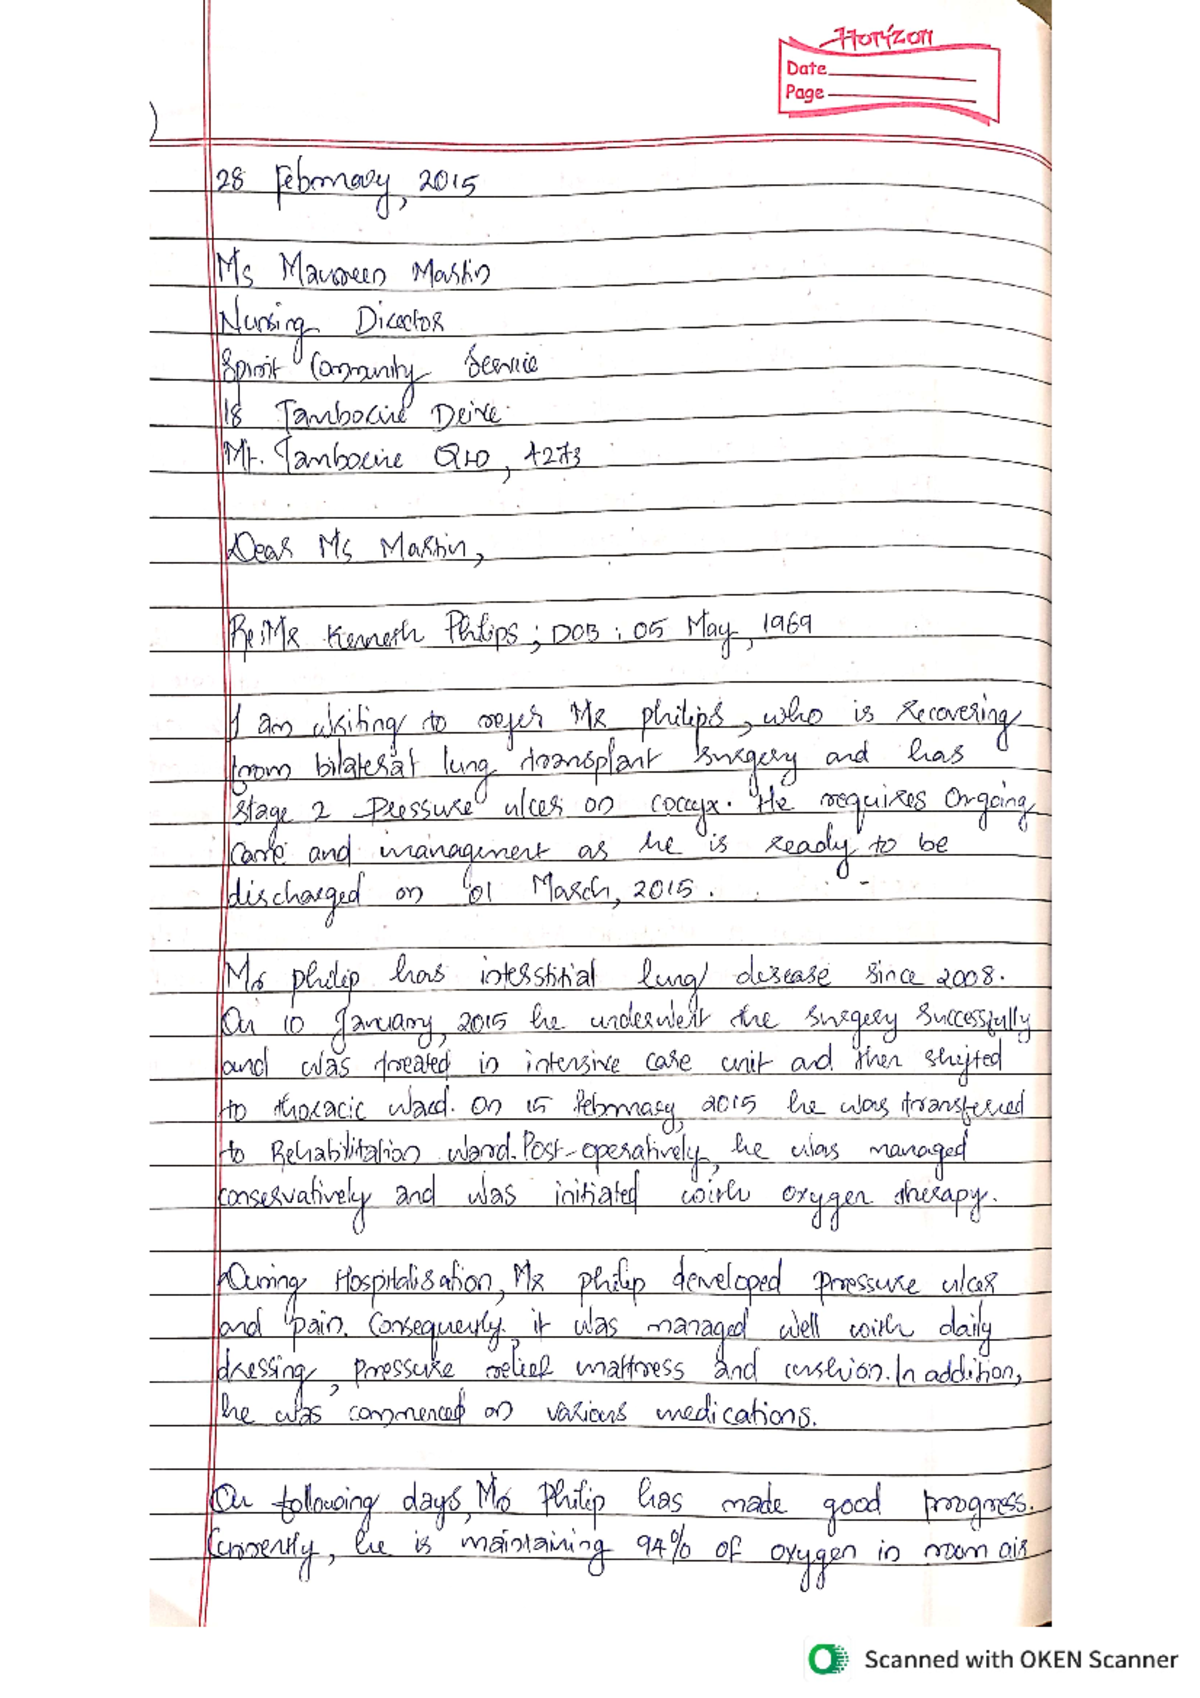 Horizon
Date
Page
)
28 February, 2015
Ms Maureen Martin
Nursing Director
Spirit Community Service
18 Tambocire Drive
Mt. Tambocire QLD, 4273
Dear Ms Martin,
Re: Mr Kenneth Philips ; DOB : 05 May, 1969
I am writing to refer Mr philips, who is recovering
from bilateral lung transplant surgery and has
stage 2 Pressure ulcer on coccyx. He requires Ongoing
care and management as he is ready to be
discharged on 01 March, 2015.
Mr philip has intersstitial lung disease since 2008.
On 10 January, 2015 he underwent the surgery successfully
and was treated in intensive care unit and then shifted
to thoracic ward. On 15 February, 2015 he was transferred
to Rehabilitation ward. Post-operatively, he was managed
conservatively and was initiated with oxygen therapy.
During Hospitalisation, Mr philip developed pressure ulcer
and pain. Consequently, it was managed well with daily
dressing, pressure relief mattress and cushion. In addition,
he was commenced on various medications.
On following days, Mr Philip has made good progress.
Currently, he is maintaining 94% of oxygen in room air
Scanned with OKEN Scanner